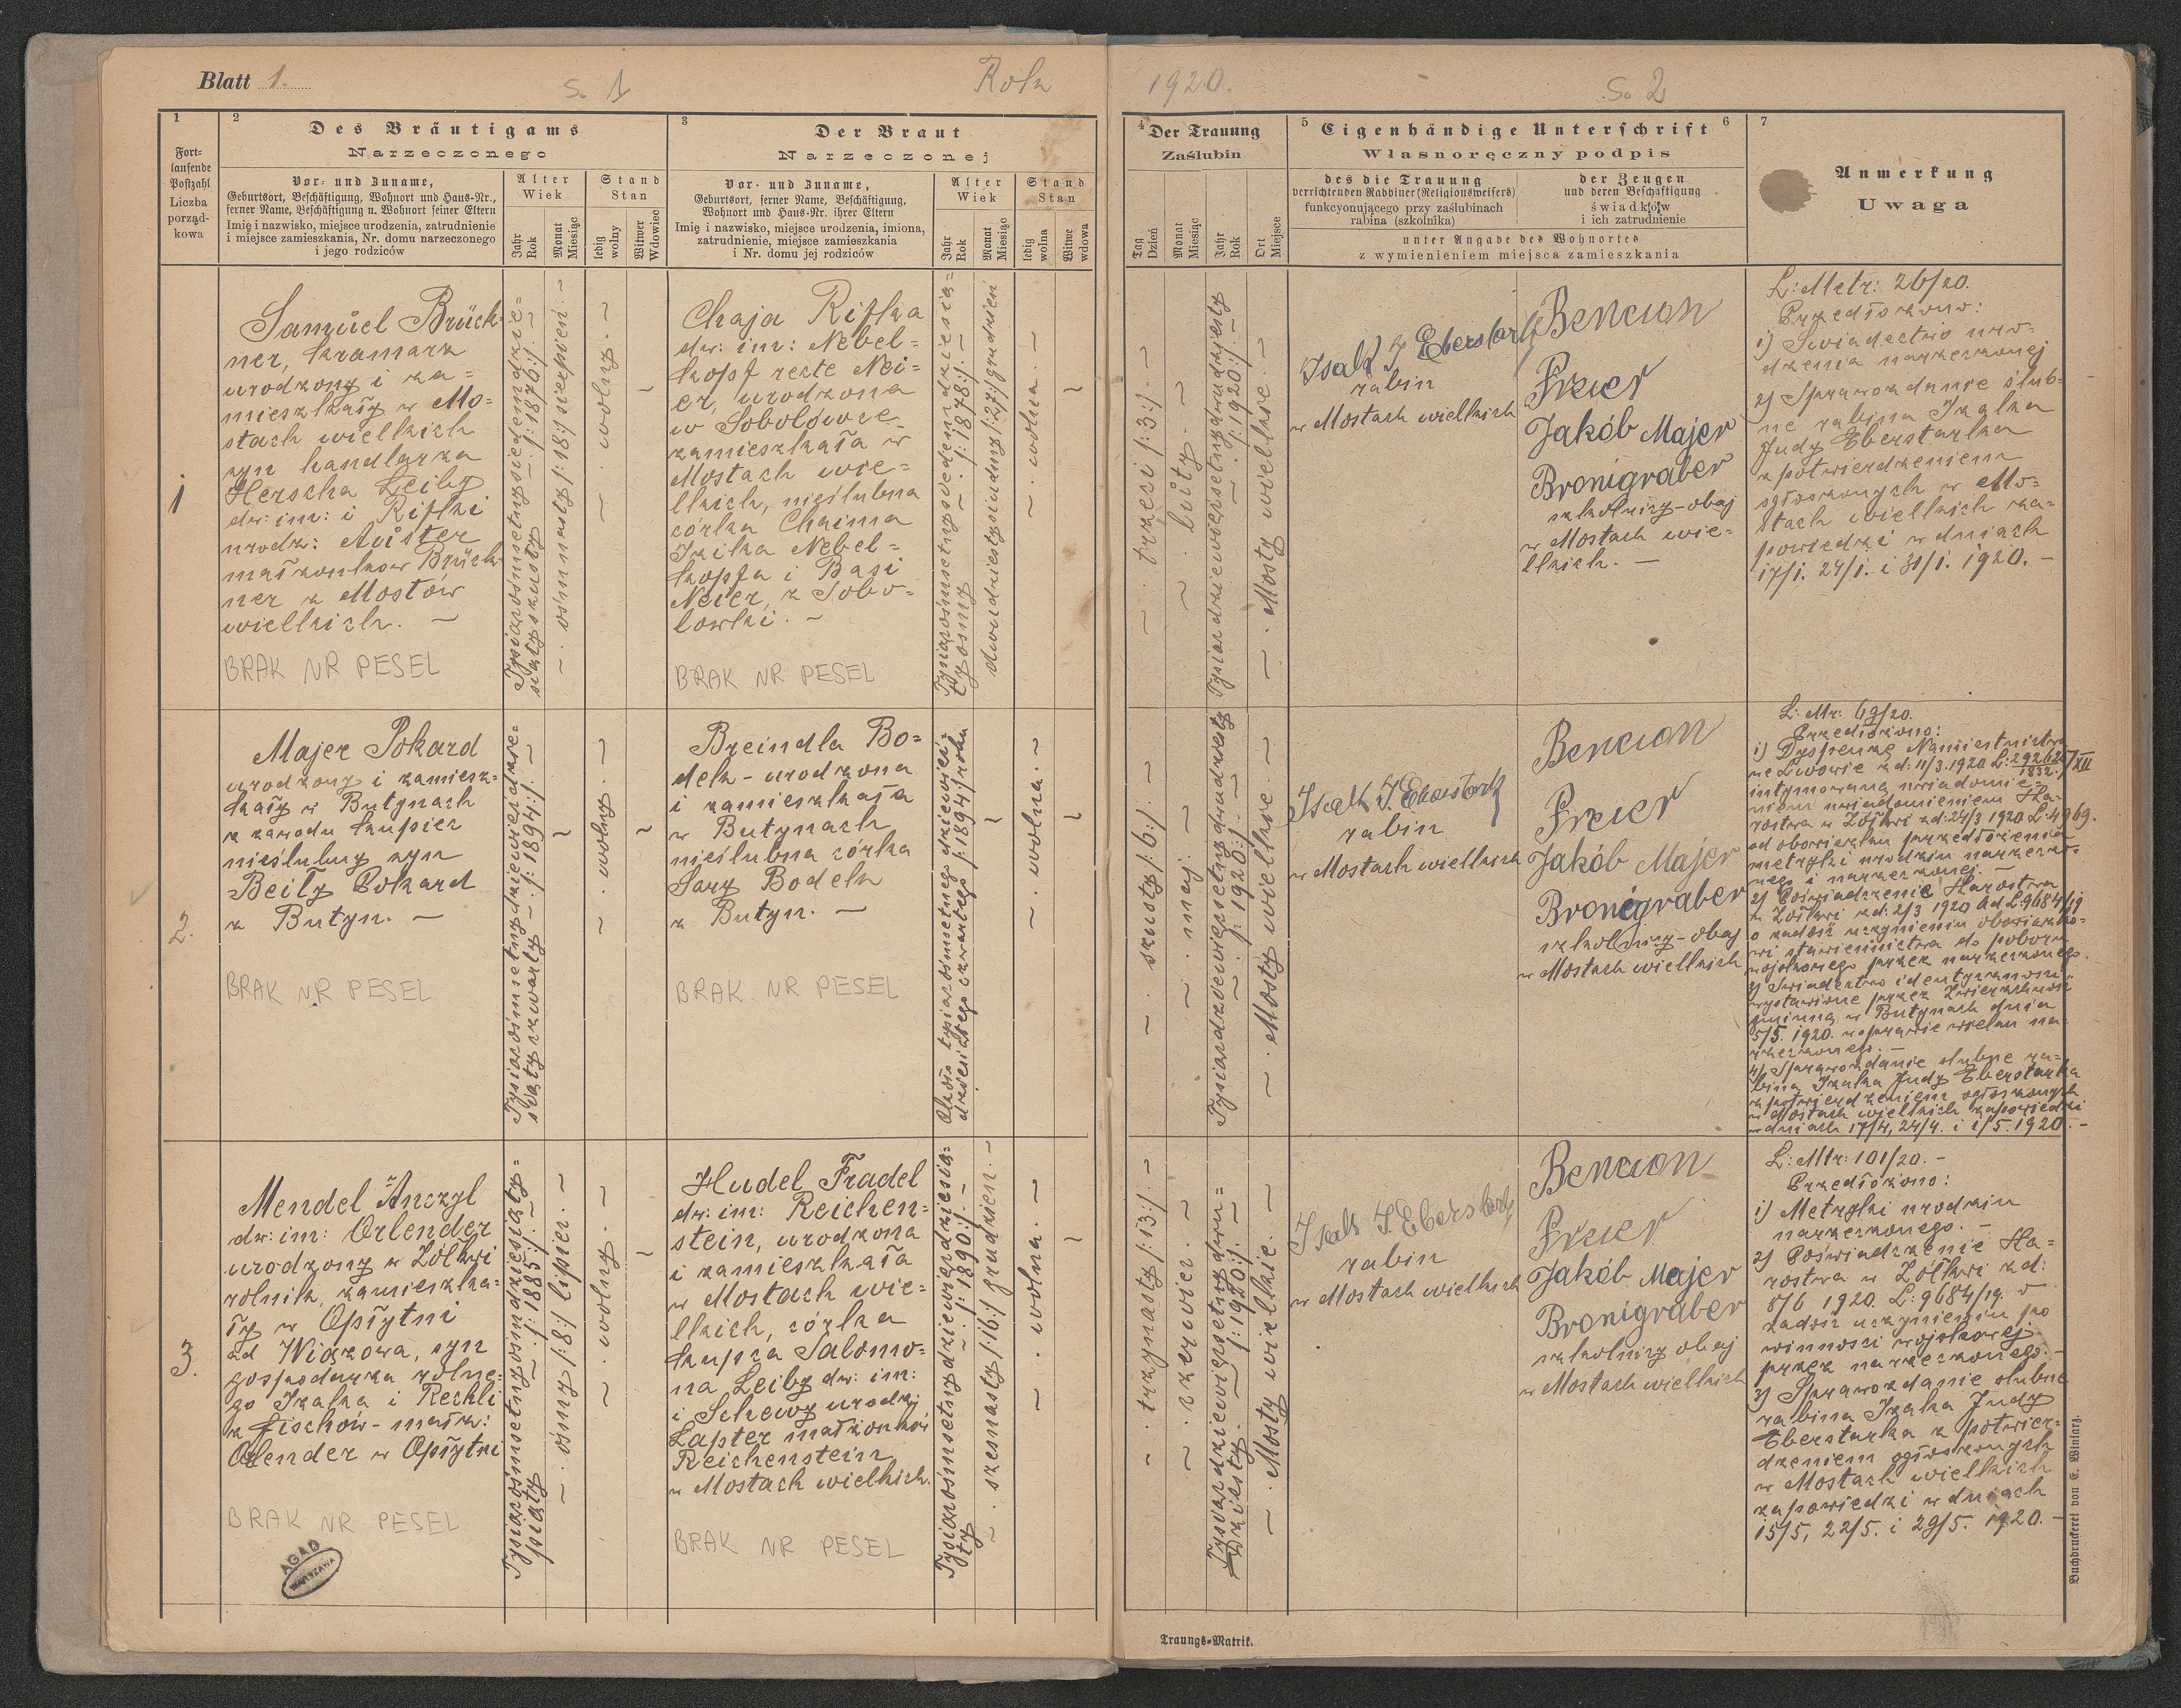 Blatt 1.
S. 1
Rok
1920.
S. 2
1
Fort-
laufende
Postzahl
Liczba
porząd-
kowa
2
Des Bräutigams
Narzeczonego
Vor- und Zuname,
Geburtsort, Beschäftigung, Wohnort und Haus-Nr.,
ferner Name, Beschäftigung u. Wohnort seiner Eltern
Imię i nazwisko, miejsce urodzenia, zatrudnienie
i miejsce zamieszkania, Nr. domu narzeczonego
i jego rodziców
Alter
Wiek
Jahr
Rok
Monat
Miesiąc
Stand
Stan
ledig
wolny
Witwer
Wdowiec
3
Der Braut
Narzeczonej
Vor- und Zuname,
Geburtsort, ferner Name, Beschäftigung,
Wohnort und Haus-Nr. ihrer Eltern
Imię i nazwisko, miejsce urodzenia, imiona,
zatrudnienie, miejsce zamieszkania
i Nr. domu jej rodziców
Alter
Wiek
Jahr
Rok
Monat
Miesiąc
Stand
Stan
ledig
wolna
Witwe
wdowa
4
Der Trauung
Zaślubin
Tag
Dzień
Monat
Miesiąc
Jahr
Rok
Ort
Miejsce
5 Eigenhändige Unterschrift 6
Własnoręczny podpis
des die Trauung
verrichtenden Rabbiner (Religionsweisers)
funkcyonującego przy zaślubinach
rabina (szkolnika)
der Zeugen
und deren Beschäftigung
świadków
i ich zatrudnienie
unter Angabe des Wohnortes
z wymienieniem miejsca zamieszkania
7
Anmerkung
Uwaga
1
Samuel Brück-
ner, kramarz
urodzony i za-
mieszkały w Mo-
stach wielkich
syn handlarza
Herscha Leiby
dw: im: i Rifki
urodz: Aüster
małżonków Brück-
ner z Mostów
wielkich. —
BRAK NR PESEL
Tysiącośmsetnysiedemdzie-
siątyszósty — /:1876:/. —
— . ośmnasty /:18:/ sierpień. —
— . wolny. —
—
Chaja Rifka
dw: im: Nebel-
kopf recte Nei-
er, urodzona
w Sobolówce
zamieszkała w
Mostach wie-
lkich, nieślubna
córka Chaima
Izika Nebel-
kopfa i Basi
Neier, z Sobo-
lówki. —
BRAK NR PESEL
Tysiącośmsetnysiedemdziesią-
tyósmy — /:1878:/. —
dwudziestysiódmy /:27:/ grudzień
— . wolna. —
—
— trzeci /:3:/. —
— . luty. —
Tysiącdziewięćsetnydwudziesty
— . /:1920:/. —
— . Mosty wielkie. —
Isak J Eberstark
rabin
w Mostach wielkich
Bencion
Freier
Jakób Majer
Bronigraber
szkolnicy - obaj
w Mostach wie-
lkich. —
L: Metr: 26/20.
Przedłożono:
1) Świadectwo uro-
dzenia narzeczonej
2) Sprawozdanie ślub-
ne rabina Izaka
Judy Eberstarka
z potwierdzeniem
ogłoszonych w Mo-
stach wielkich za-
powiedzi w dniach
17/1. 24/1. i 31/1. 1920. —
2.
Majer Pokard
urodzony i zamiesz-
kały w Butynach
z zawodu kupiec
nieślubny syn
Beily Pokard
z Butyn. —
BRAK NR PESEL
Tysiącośmsetnydziewięćdzie-
siątyczwarty — . /:1894:/. —
—
— . wolny. —
—
Breindla Bo-
dek - urodzona
i zamieszkała
w Butynach
nieślubna córka
Sary Bodek
z Butyn. —
BRAK NR PESEL
Około tysiącośmsetnego dziewięć-
dziesiątego czwartego /:1894:/ roku
—
— . wolna. —
—
— . szósty /:6:/. —
— . maj: —
Tysiącdziewięćsetnydwudziesty
— . /:1920:/. —
— . Mosty wielkie. —
Isak J. Eberstark
rabin
w Mostach wielkich
Bencion
Freier
Jakób Majer
Bronigraber
szkolnicy - obaj
w Mostach wielkich
L: Mtr: 69/20.
Przedłożono:
1) Dyspenzę Namiestnictwa
we Lwowie z d: 11/3. 1920 L:
intymowaną uwiadomie-
niem uwiadomieniem Sta-
rostwa w Żółkwi z d: 24/3 1920 L: 4969.
od obowiązku przedłożenia
metryki urodzin narzeczo-
nego i narzeczonej. —
2) Poświadczenie Starostwa
w Żółkwi z d: 2/3 1920 ad L: 9684/19
o zadość uczynieniu obowiązko-
wi stawiennictwa do poboru
wojskowego przez narzeczonego.
3) Świadectwo identyczności
wystawione przez Zwierzchność
gminną w Butynach dnia
5/5. 1920. w sprawie wieku na-
rzeczonego. —
4) Sprawozdanie ślubne ra-
bina Izaka Judy Eberstarka
z potwierdzeniem ogłoszonych
w Mostach wielkich zapowiedzi
w dniach 17/4, 24/4. i 1/5. 1920. —
3.
Mendel Anczyl
dw: im: Orlender
urodzony w Żółkwi
rolnik, zamieszka-
ły w Opłytni
ad Wiązowa, syn
gospodarza rolne-
go Izaka i Rechli
z Fischów - małż:
Orlender w Opłytni
BRAK NR PESEL
AGAD
WARSZAWA
Tysiącośmsetnyośmdziesiąty-
piąty — . /:1885:/. —
— . ósmy /:8:/ lipiec. —
— . wolny. —
—
Hudel Fradel
dw: im: Reichen-
stein, urodzona
i zamieszkała
w Mostach wie-
lkich, córka
kupca Salomo-
na Leiby dw: im:
i Schewy urodzj
Lapter małżonków
Reichenstein
w Mostach wielkich.
BRAK NR PESEL
Tysiącośmsetnydziewięćdziesią-
ty — . /:1890:/. —
— . szesnasty /:16:/ grudzień. —
— . wolna. —
—
— . trzynasty /:13:/. —
— . czerwiec. —
Tysiącdziewięćsetnydwu-
dziesty. — /:1920:/. —
— . Mosty wielkie. —
Isak J. Eberstark
rabin
w Mostach wielkich
Bencion
Freier
Jakób Majer
Bronigraber
szkolnicy obaj
w Mostach wielkich
L: Mtr: 101/20. —
Przedłożono:
1) Metryki urodzin
narzeczonego. —
2) Poświadczenie Sta-
rostwa w Żółkwi z d:
8/6 1920. L: 9684/19. o
zadość uczynieniu po
winności wojskowej
przez narzeczonego. —
3) Sprawozdanie ślubne
rabina Izaka Judy
Eberstarka z potwier-
dzeniem ogłoszonych
w Mostach wielkich
zapowiedzi w dniach
15/5, 22/5. i 29/5. 1920. —
Buchdruckerei von E. Winiarz.
Trauungs-Matrik.